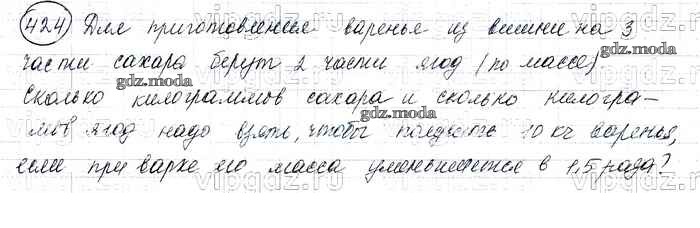 424) Для приготовления варенья из вишни на 3
части сахара берут 2 части ягод (по массе)
Сколько килограммов сахара и сколько килогра-
мов ягод надо взять, чтобы получить 10 кг варенья,
если при варке его масса уменьшается в 1,5 раза?
gdz.moda
gdz.moda
gdz.moda
gdz.moda
vipgdz.ru
vipgdz.ru